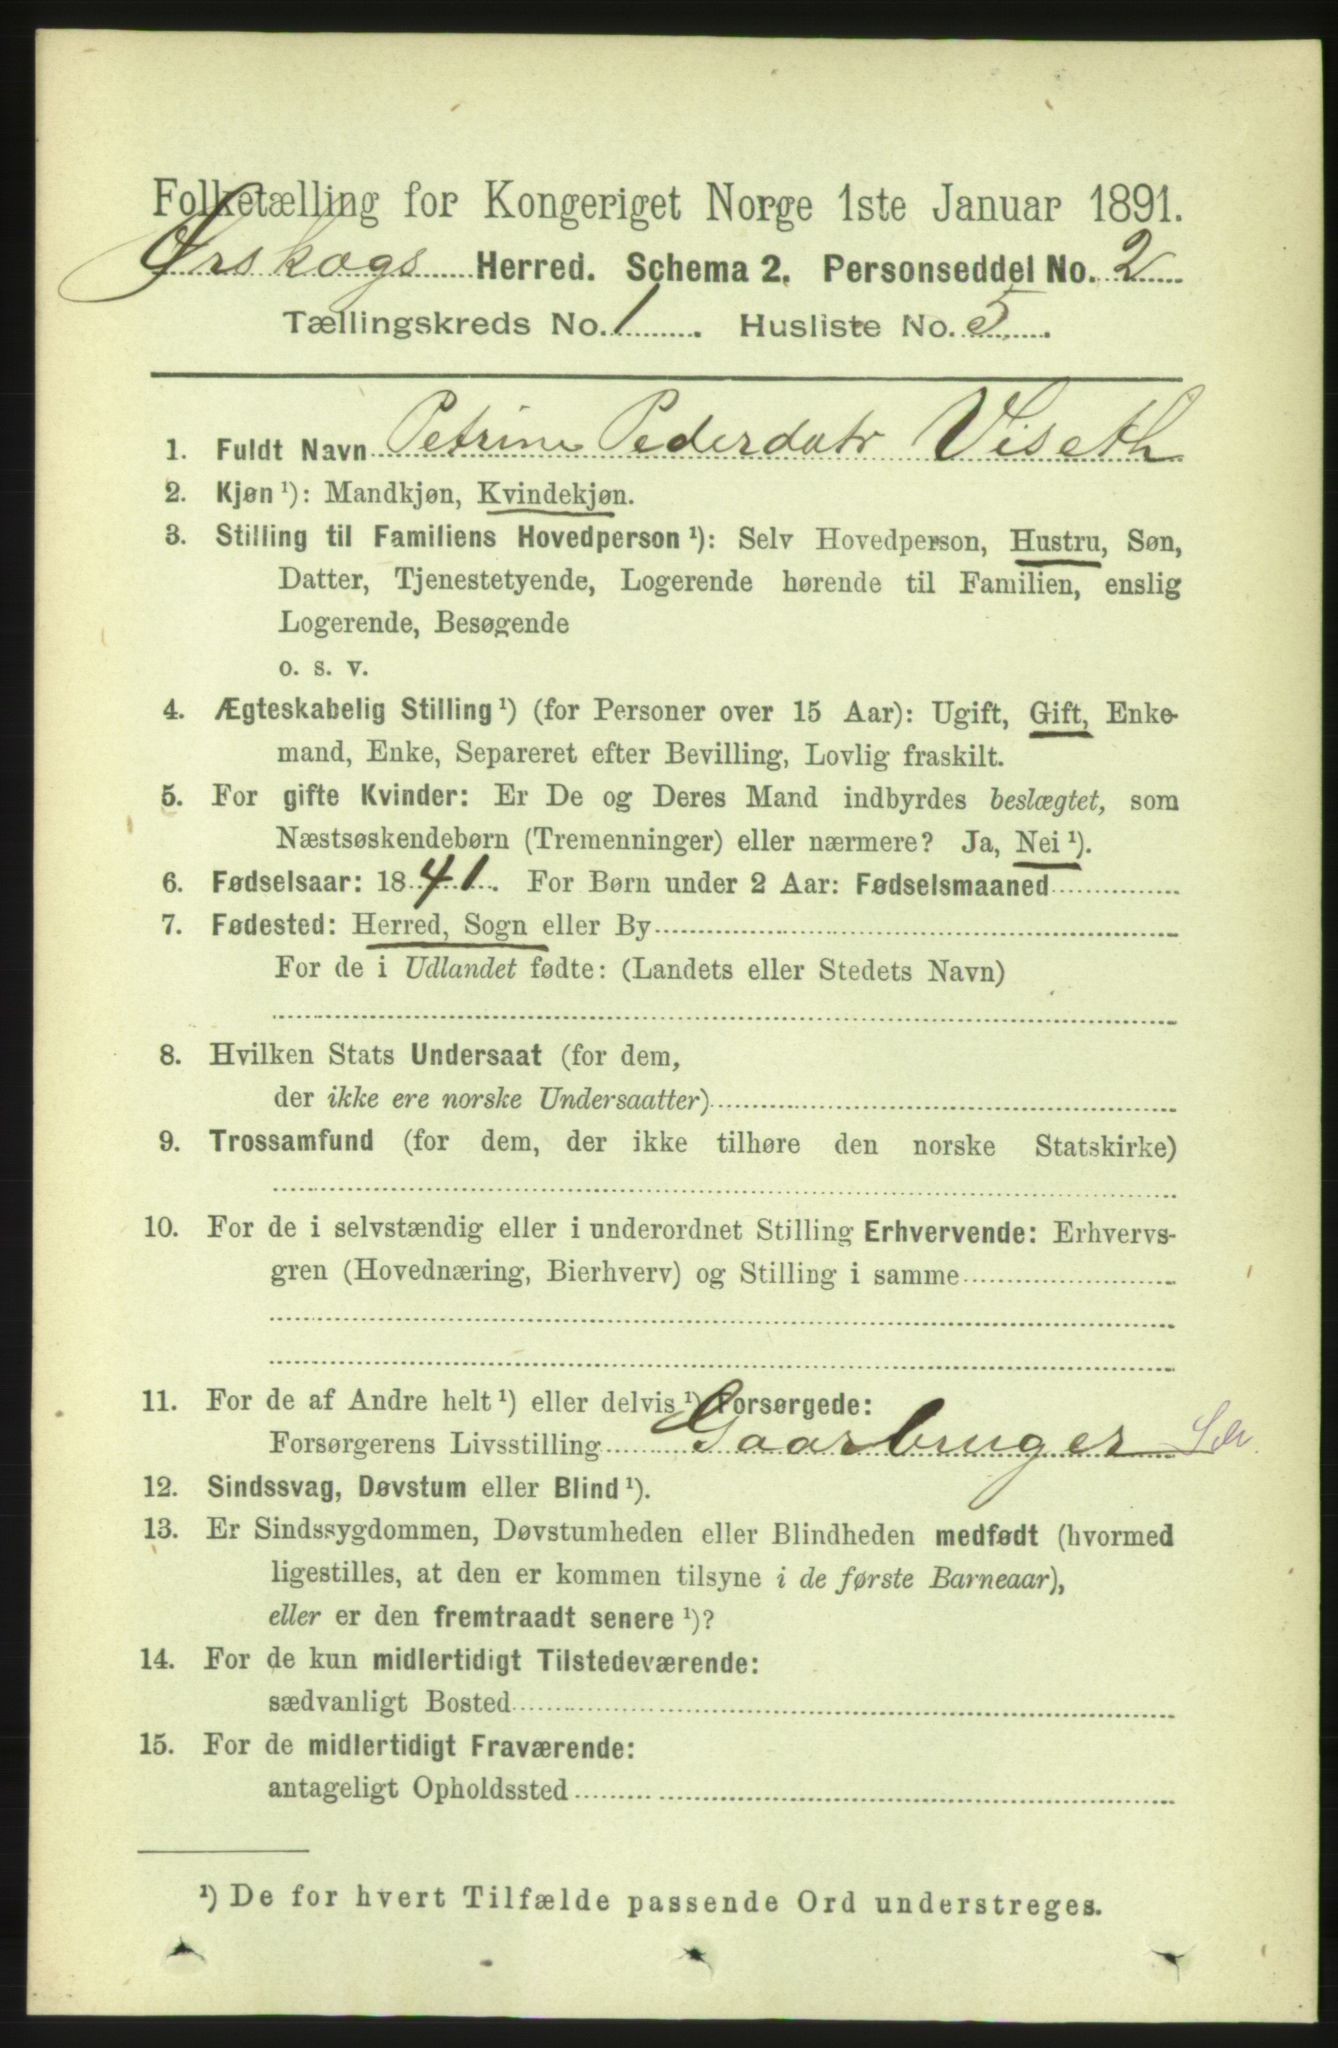 Folketælling for Kongeriget Norge 1ste Januar 1891.
Ørskogs Herred. Schema 2. Personseddel No. 2
Tællingskreds No. 1. Husliste No. 5.
1. Fuldt Navn Petrine Pedersdatr Viseth
2. Kjøn ¹): Mandkjøn, Kvindekjøn.
3. Stilling til Familiens Hovedperson ¹): Selv Hovedperson, Hustru, Søn,
Datter, Tjenestetyende, Logerende hørende til Familien, enslig
Logerende, Besøgende
o. s. v.
4. Ægteskabelig Stilling ¹) (for Personer over 15 Aar): Ugift, Gift, Enke-
mand, Enke, Separeret efter Bevilling, Lovlig fraskilt.
5. For gifte Kvinder: Er De og Deres Mand indbyrdes beslægtet, som
Næstsøskendebørn (Tremenninger) eller nærmere? Ja, Nei ¹).
6. Fødselsaar: 1841. For Børn under 2 Aar: Fødselsmaaned
7. Fødested: Herred, Sogn eller By
For de i Udlandet fødte: (Landets eller Stedets Navn)
8. Hvilken Stats Undersaat (for dem,
der ikke ere norske Undersaatter)
9. Trossamfund (for dem, der ikke tilhøre den norske Statskirke)
10. For de i selvstændig eller i underordnet Stilling Erhvervende: Erhvervs-
gren (Hovednæring, Bierhverv) og Stilling i samme
11. For de af Andre helt ¹) eller delvis ¹) Forsørgede:
Forsørgerens Livsstilling Gaarbruger
12. Sindssvag, Døvstum eller Blind ¹).
13. Er Sindssygdommen, Døvstumheden eller Blindheden medfødt (hvormed
ligestilles, at den er kommen tilsyne i de første Barneaar),
eller er den fremtraadt senere ¹)?
14. For de kun midlertidigt Tilstedeværende:
sædvanligt Bosted
15. For de midlertidigt Fraværende:
antageligt Opholdssted
¹) De for hvert Tilfælde passende Ord understreges.